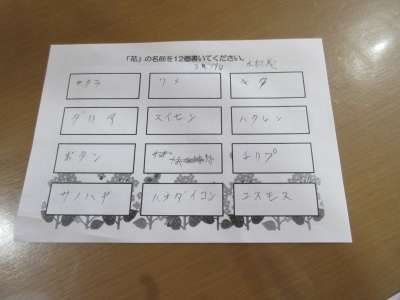 「花」の名前を12個書いてください。
サクラ
ウメ
キク
ダリヤ
スイセン
ハクレン
ボタン
ユリプ
サノハヤ
ハナダイコン
コスモス